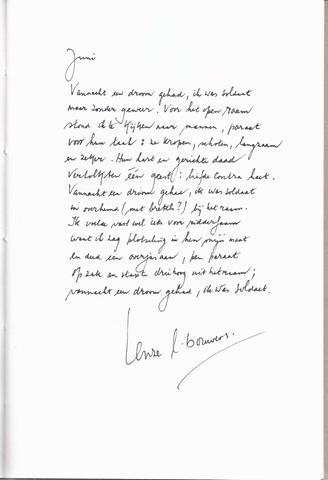 Juni
Vannacht een droom gehad, ik was soldaat
maar zonder geweer. Voor het open raam
stond ik te kijken naar mannen, paraat
voor hun taak: ze kropen, schoten, langzaam
en zeker. Hun hart en gerichte daad
vertolkten één geest: liefde contra haat.
Vannacht een droom gehad, ik was soldaat
in overhemd (met bretels?) bij het raam.
Ik voelde vast wel iets voor
want ik zag plotseling in hen mijn maat
en deed een overjas aan, pen paraat
op zak en stapte driehoog uit het raam;
vannacht een droom gehad, ik was soldaat.